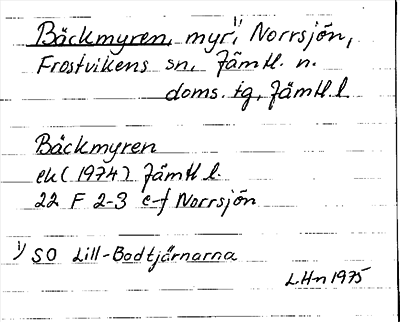 Bäckmyren, myr,¹⁾ Norrsjön,
Frostvikens sn, Jämtl. n.
doms. tg, Jämtl. l
Bäckmyren
ek (1974) Jämtl l.
22 F 2-3 e-f Norrsjön
¹⁾ SO Lill-Badtjärnarna
LHn 1975